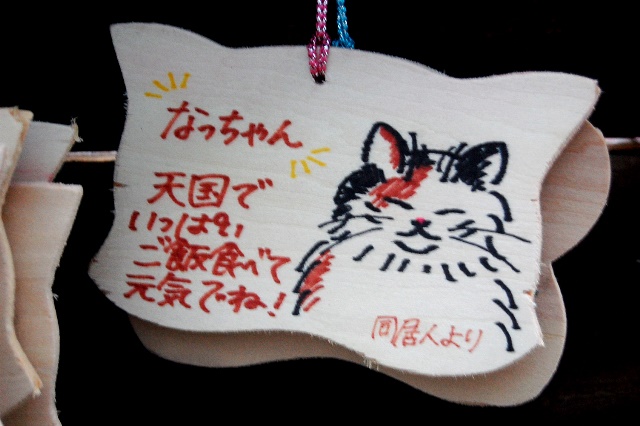 なっちゃん
天国で
いっぱい
ご飯食べて
元気でね!
同居人より